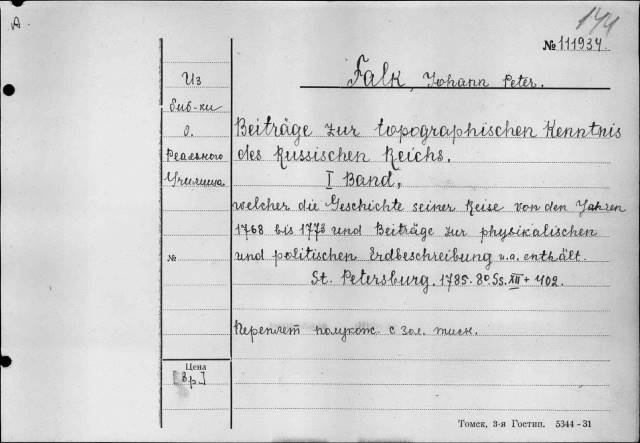 А.
144
№ 111934.
Falk, Johann Peter.
Из
биб-ки
О.
Реального
Училища.
Beiträge zur topographischen Kenntnis
des Russischen Reichs.
I Band,
welcher die Geschichte seiner Reise von den Jahren
1768 bis 1773 und Beiträge zur physikalischen
№
und politischen Erdbeschreibung u.a. enthält.
St. Petersburg. 1785. 8°. Ss. XII + 402.
Переплет полукож. с зол. тисн.
Цена
[3 р.]
Томск, 3-я Гостип. 5344-31